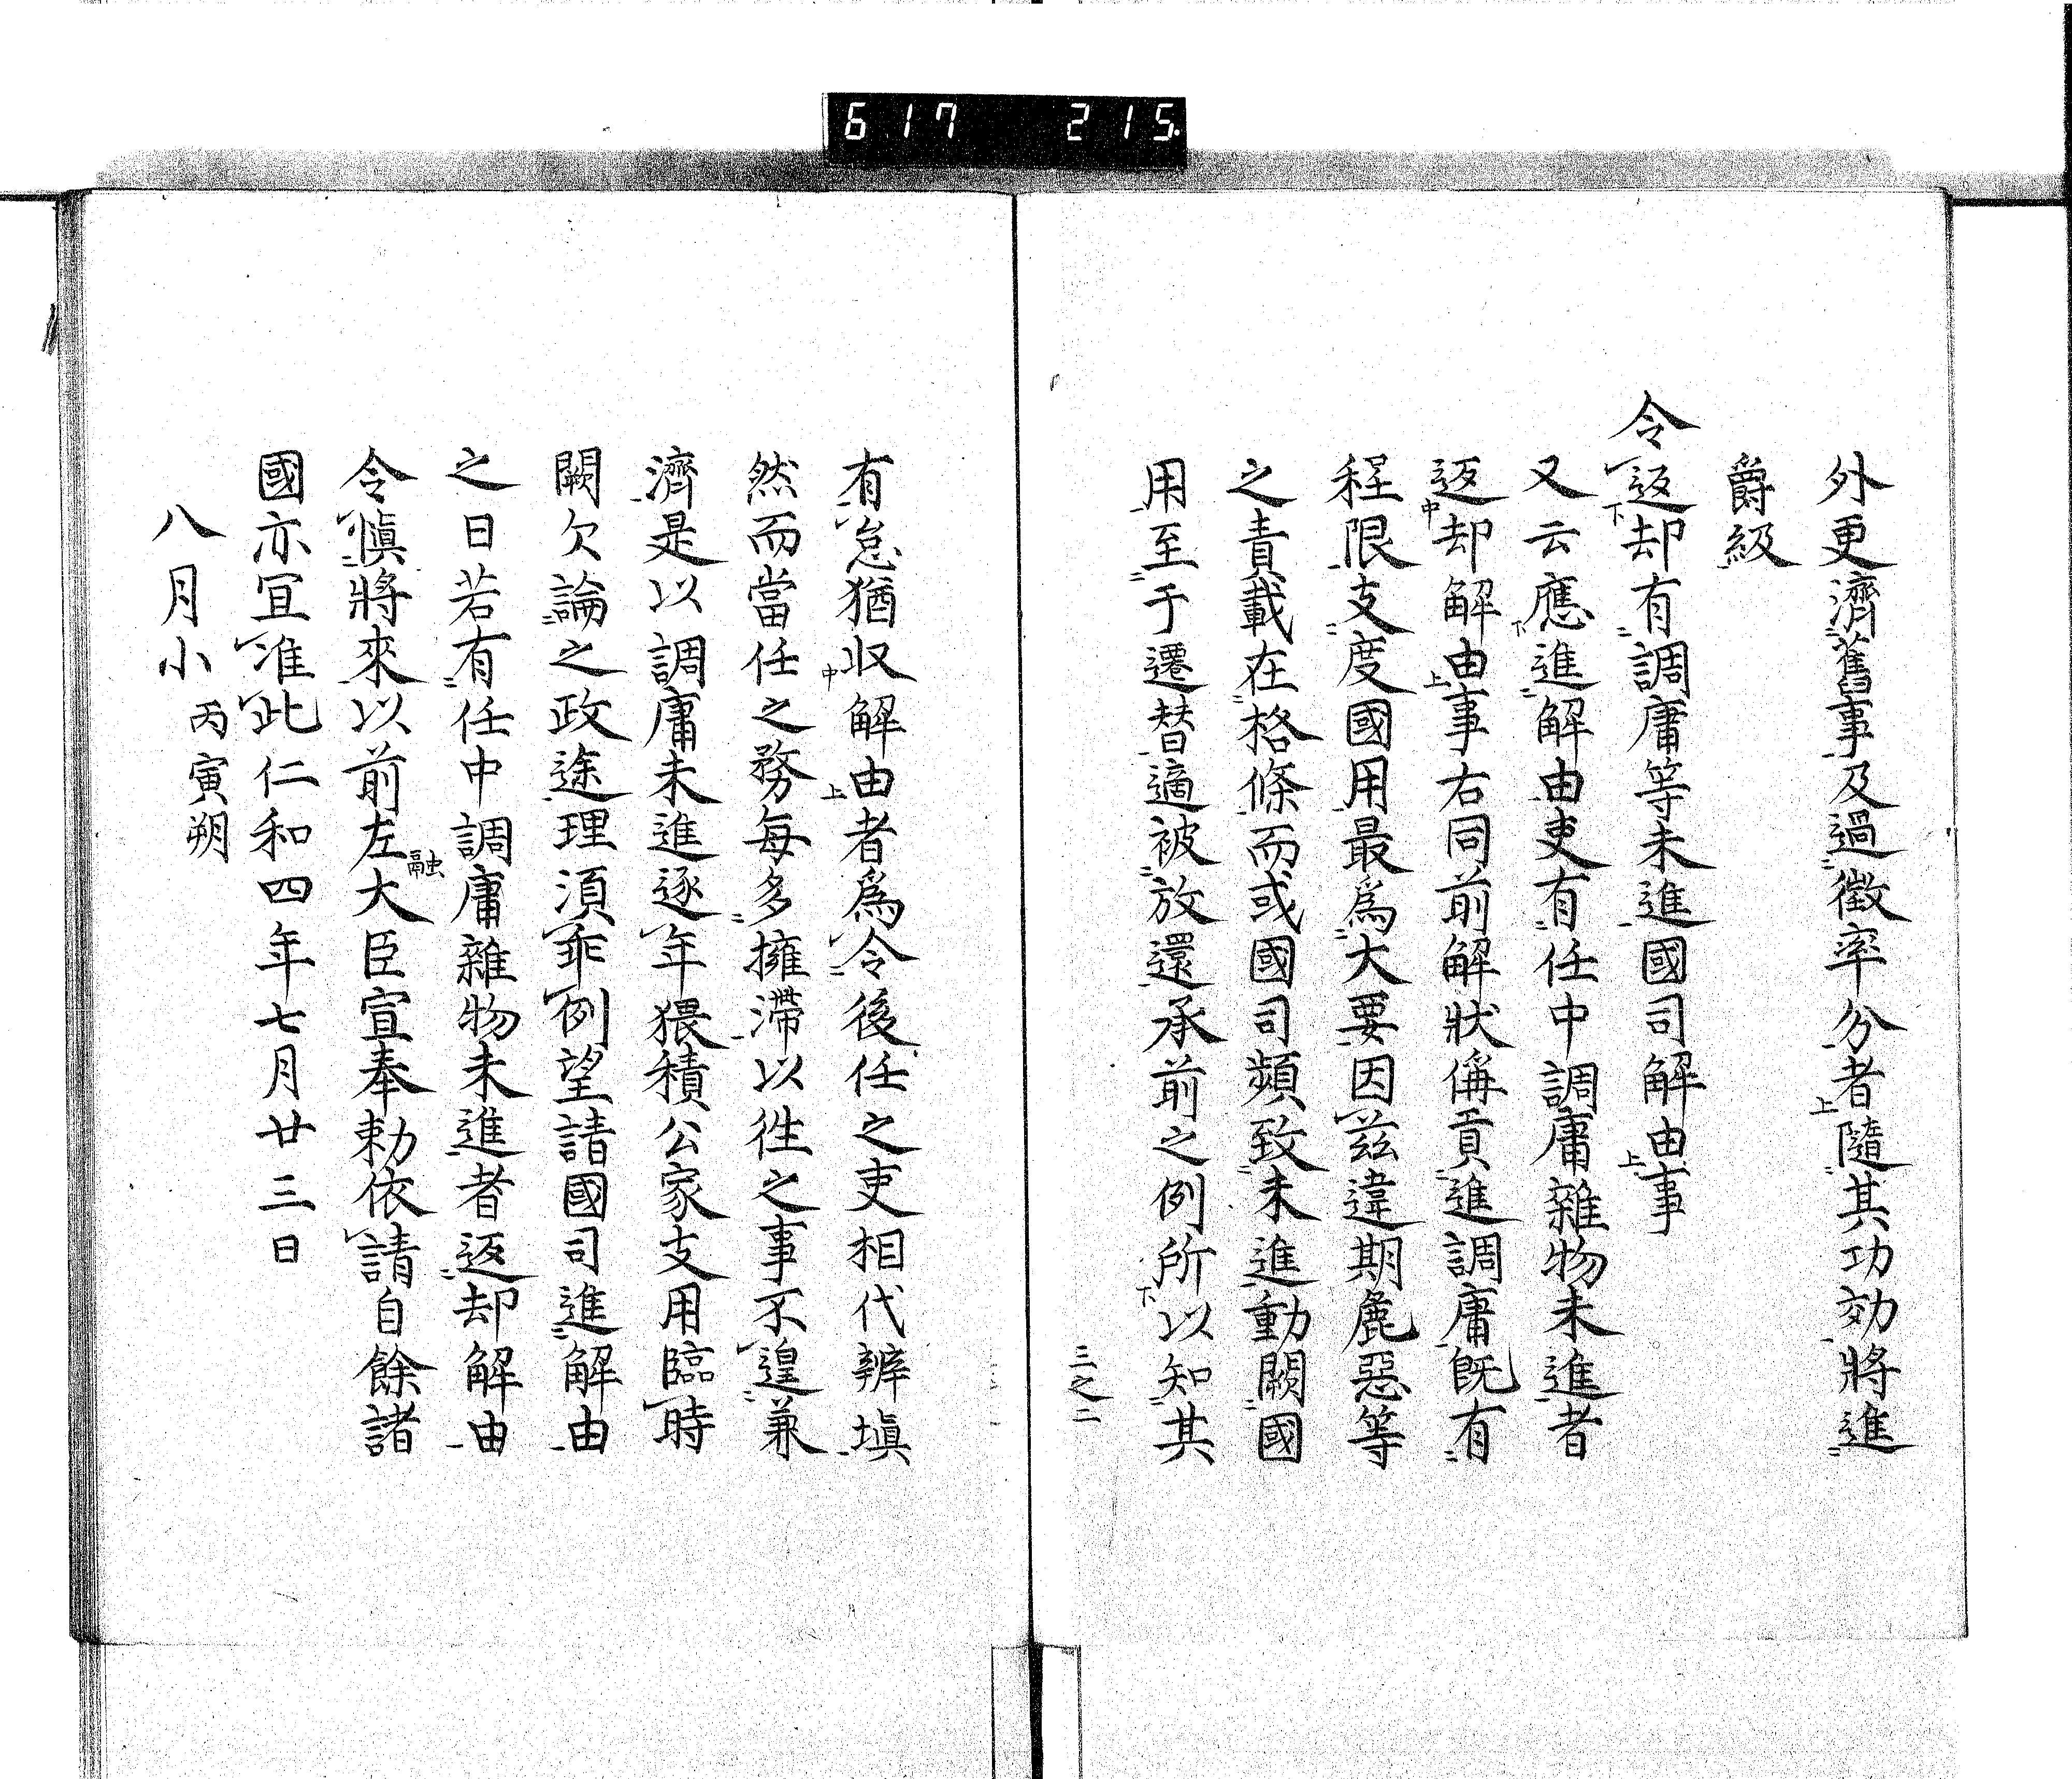 617 215.
外更濟舊事及過徵率分者隨其功効將進
爵級
令返却有調庸等未進國司解由事
又云應進解由吏有任中調庸雜物未進者
返却解由事右同前解狀偁貢進調庸既有
程限支度國用最爲大要因茲違期麁惡等
之責載在格條而或國司頻致未進動闕國
用至于遷替適被放還承前之例所以知其
三之二
有怠猶収解由者爲令後任之吏相代辨塡
然而當任之務每多擁滯以徃之事不遑兼
濟是以調庸未進逐年猥積公家支用臨時
闕欠論之政途理湏乖例望請國司進解由
之日若有任中調庸雜物未進者返却解由
令愼將來以前左大臣宣奉勅依請自餘諸
融
國亦冝准此仁和四年七月廿三日
八月小丙寅朔